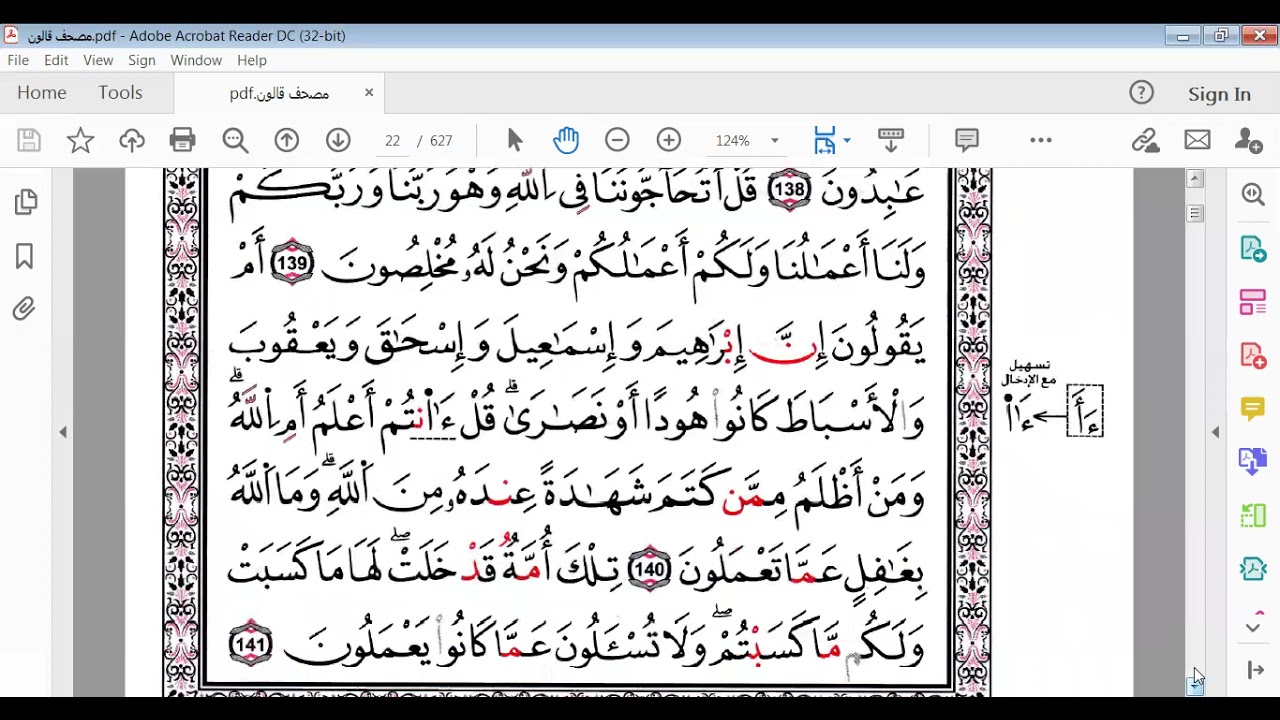 مصحف قالون.pdf - Adobe Acrobat Reader DC (32-bit)
File Edit View Sign Window Help
Home Tools مصحف قالون.pdf × Sign In
22 / 627 124%
عَٰبِدُونَ 138 قُلْ أَتُحَآجُّونَنَا فِي اِ۬للَّهِ وَهْوَ رَبُّنَا وَرَبُّكُمْ
وَلَنَا أَعْمَٰلُنَا وَلَكُمْ أَعْمَٰلُكُمْ وَنَحْنُ لَهُۥ مُخْلِصُونَ 139 أَمْ
يَقُولُونَ إِنَّ إِبْرَٰهِيمَ وَإِسْمَٰعِيلَ وَإِسْحَٰقَ وَيَعْقُوبَ
تسهيل
مع الإدخال
ءَأَ ← ءَا۬
وَالْأَسْبَاطَ كَانُواْ هُودًا أَوْ نَصَٰرَىٰۗ قُلْ ءَا۬نتُمْ أَعْلَمُ أَمِ اِ۬للَّهُۗ
وَمَنْ أَظْلَمُ مِمَّن كَتَمَ شَهَٰدَةً عِندَهُۥ مِنَ اَ۬للَّهِۗ وَمَا اَ۬للَّهُ
بِغَٰفِلٍ عَمَّا تَعْمَلُونَ 140 تِلْكَ أُمَّةٌ قَدْ خَلَتْۖ لَهَا مَا كَسَبَتْ
وَلَكُم مَّا كَسَبْتُمْۖ وَلَا تُسْـَٔلُونَ عَمَّا كَانُواْ يَعْمَلُونَ 141